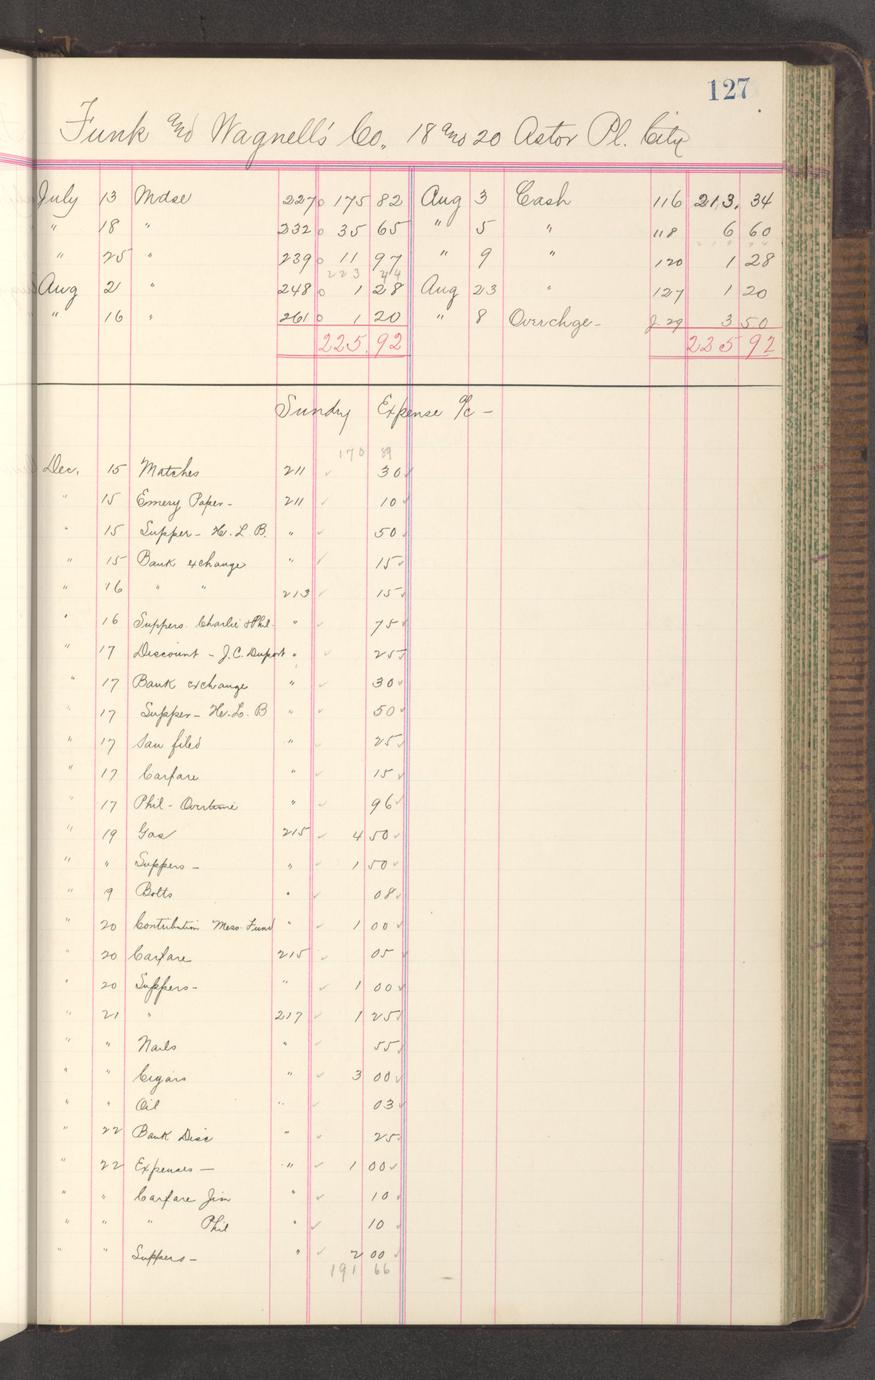 127
Funk and Wagnell's Co. 18 and 20 Astor Pl. City
July 13 Mdse 227 o 175 82 Aug 3 Cash 116 213. 34
" 18 " 232 o 35 65 " 5 " 118 6 60
" 25 " 239 o 11 97 " 9 " 120 1 28
223 44
Aug 21 " 248 o 1 28 Aug 23 " 127 1 20
" 16 " 261 o 1 20 " 8 Overchge- J. 29 3 50
225.92 225 92
Sundry Expense a/c -
170 89
Dec. 15 Matches 211 ✓ 30 ✓
" 15 Emery Paper - 211 ✓ 10 ✓
" 15 Supper - H. L. B. " ✓ 50 ✓
" 15 Bank exchange " ✓ 15 ✓
" 16 " " 213 ✓ 15 ✓
" 16 Suppers. Charlie & Phil - " ✓ 75 ✓
" 17 Discount - J. C. Duport " ✓ 25 ✓
" 17 Bank exchange " ✓ 30 ✓
" 17 Supper - H. L. B " ✓ 50 ✓
" 17 Saw filed " 25 ✓
" 17 Carfare " ✓ 15 ✓
" 17 Phil - Overtime " ✓ 96 ✓
" 19 Gas 215 ✓ 4 50 ✓
" " Suppers - " ✓ 1 50 ✓
" 9 Bolts " ✓ 08 ✓
" 20 Contribution Mess. Fund " ✓ 1 00 ✓
" 20 Carfare 215 ✓ 05 ✓
" 20 Suppers - " ✓ 1 00 ✓
" 21 " 217 ✓ 1 25 ✓
" " Nails " ✓ 55 ✓
" " Cigars " ✓ 3 00 ✓
" " Oil " ✓ 03 ✓
" 22 Bank Disc " ✓ 25 ✓
" 22 Expenses - " ✓ 1 00 ✓
" " Carfare Jim " ✓ 10 ✓
" " " Phil " ✓ 10 ✓
" " Suppers - " ✓ 2 00 ✓
191 66